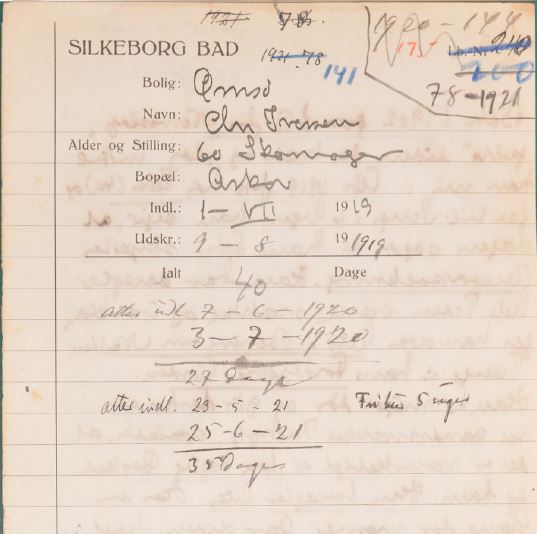 1921 78.
1920 - 144
SILKEBORG BAD
1921 - 78
141
175
Lb. Nr. 240
200
78 - 1921
Bolig: Ørnsø
Navn: Chr Iversen
Alder og Stilling: 60 Skomager
Bopæl: Askov
Indl.: 1 - VI 1919
Udskr.: 9 - 8 19 1919
Ialt 40 Dage
atter indl 7 - 6 - 1920
3 - 7 - 1920
27 Dage
atter indl. 23 - 5 - 21 Frikur 5 uger
25 - 6 - 21
35 Dage